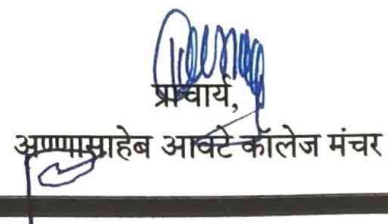 प्राचार्य,
अण्णासाहेब आवटे कॉलेज मंचर